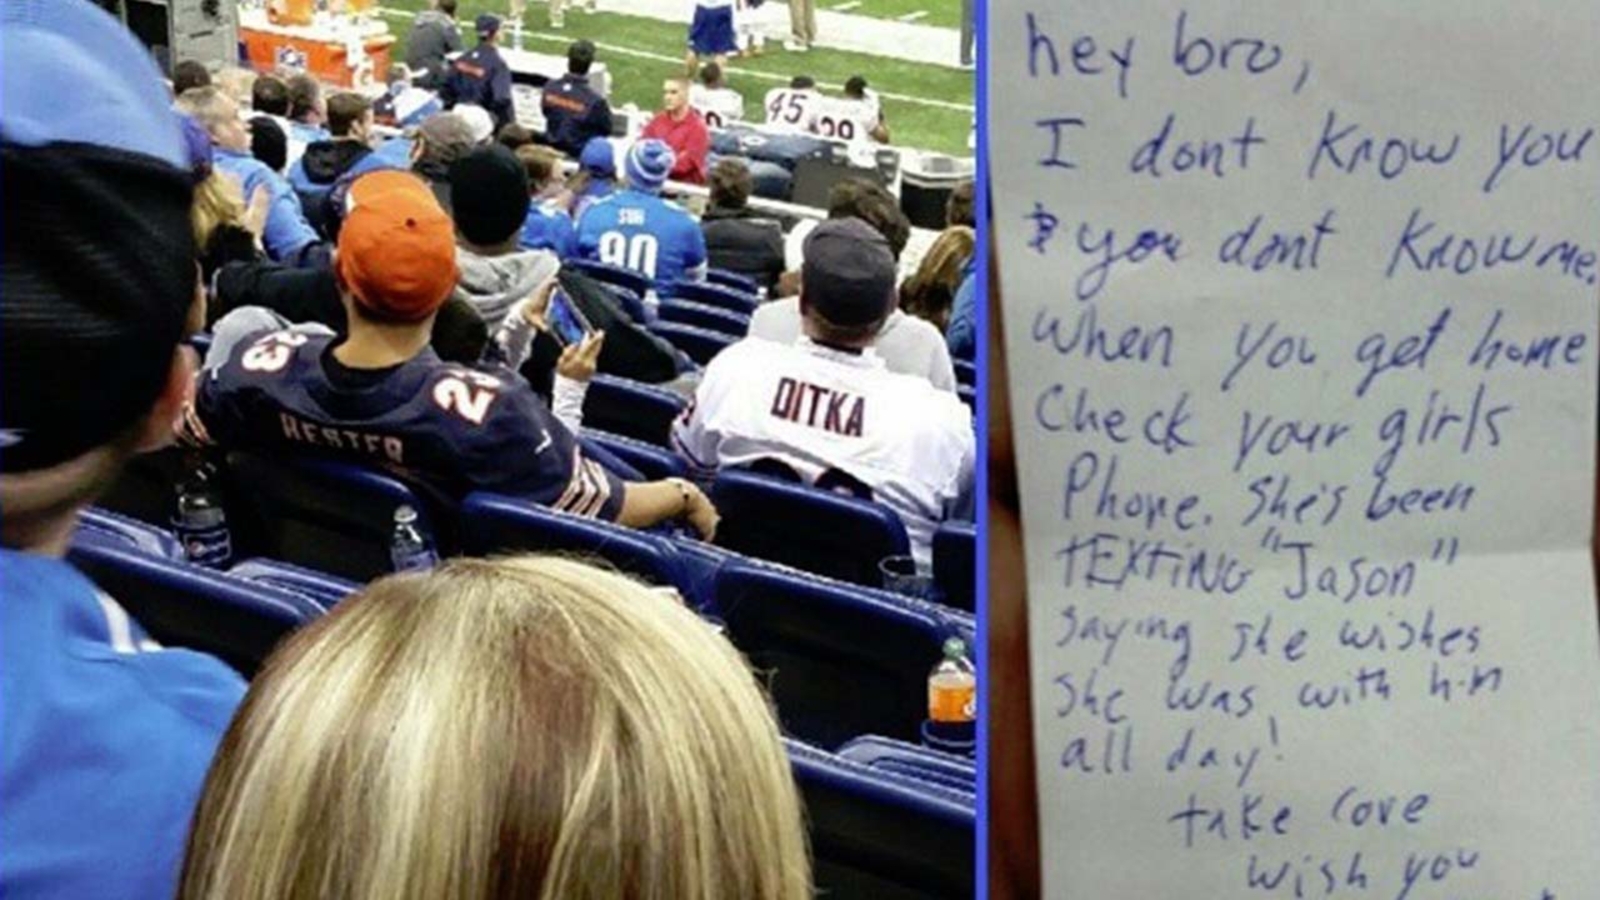 NFL
45
SUH
90
23
2
HESTER
DITKA
hey bro,
I dont know you
& you dont know me.
when you get home
Check your girls
Phone. She's been
TEXTING "Jason"
saying she wishes
She was with him
all day!
take care
wish you